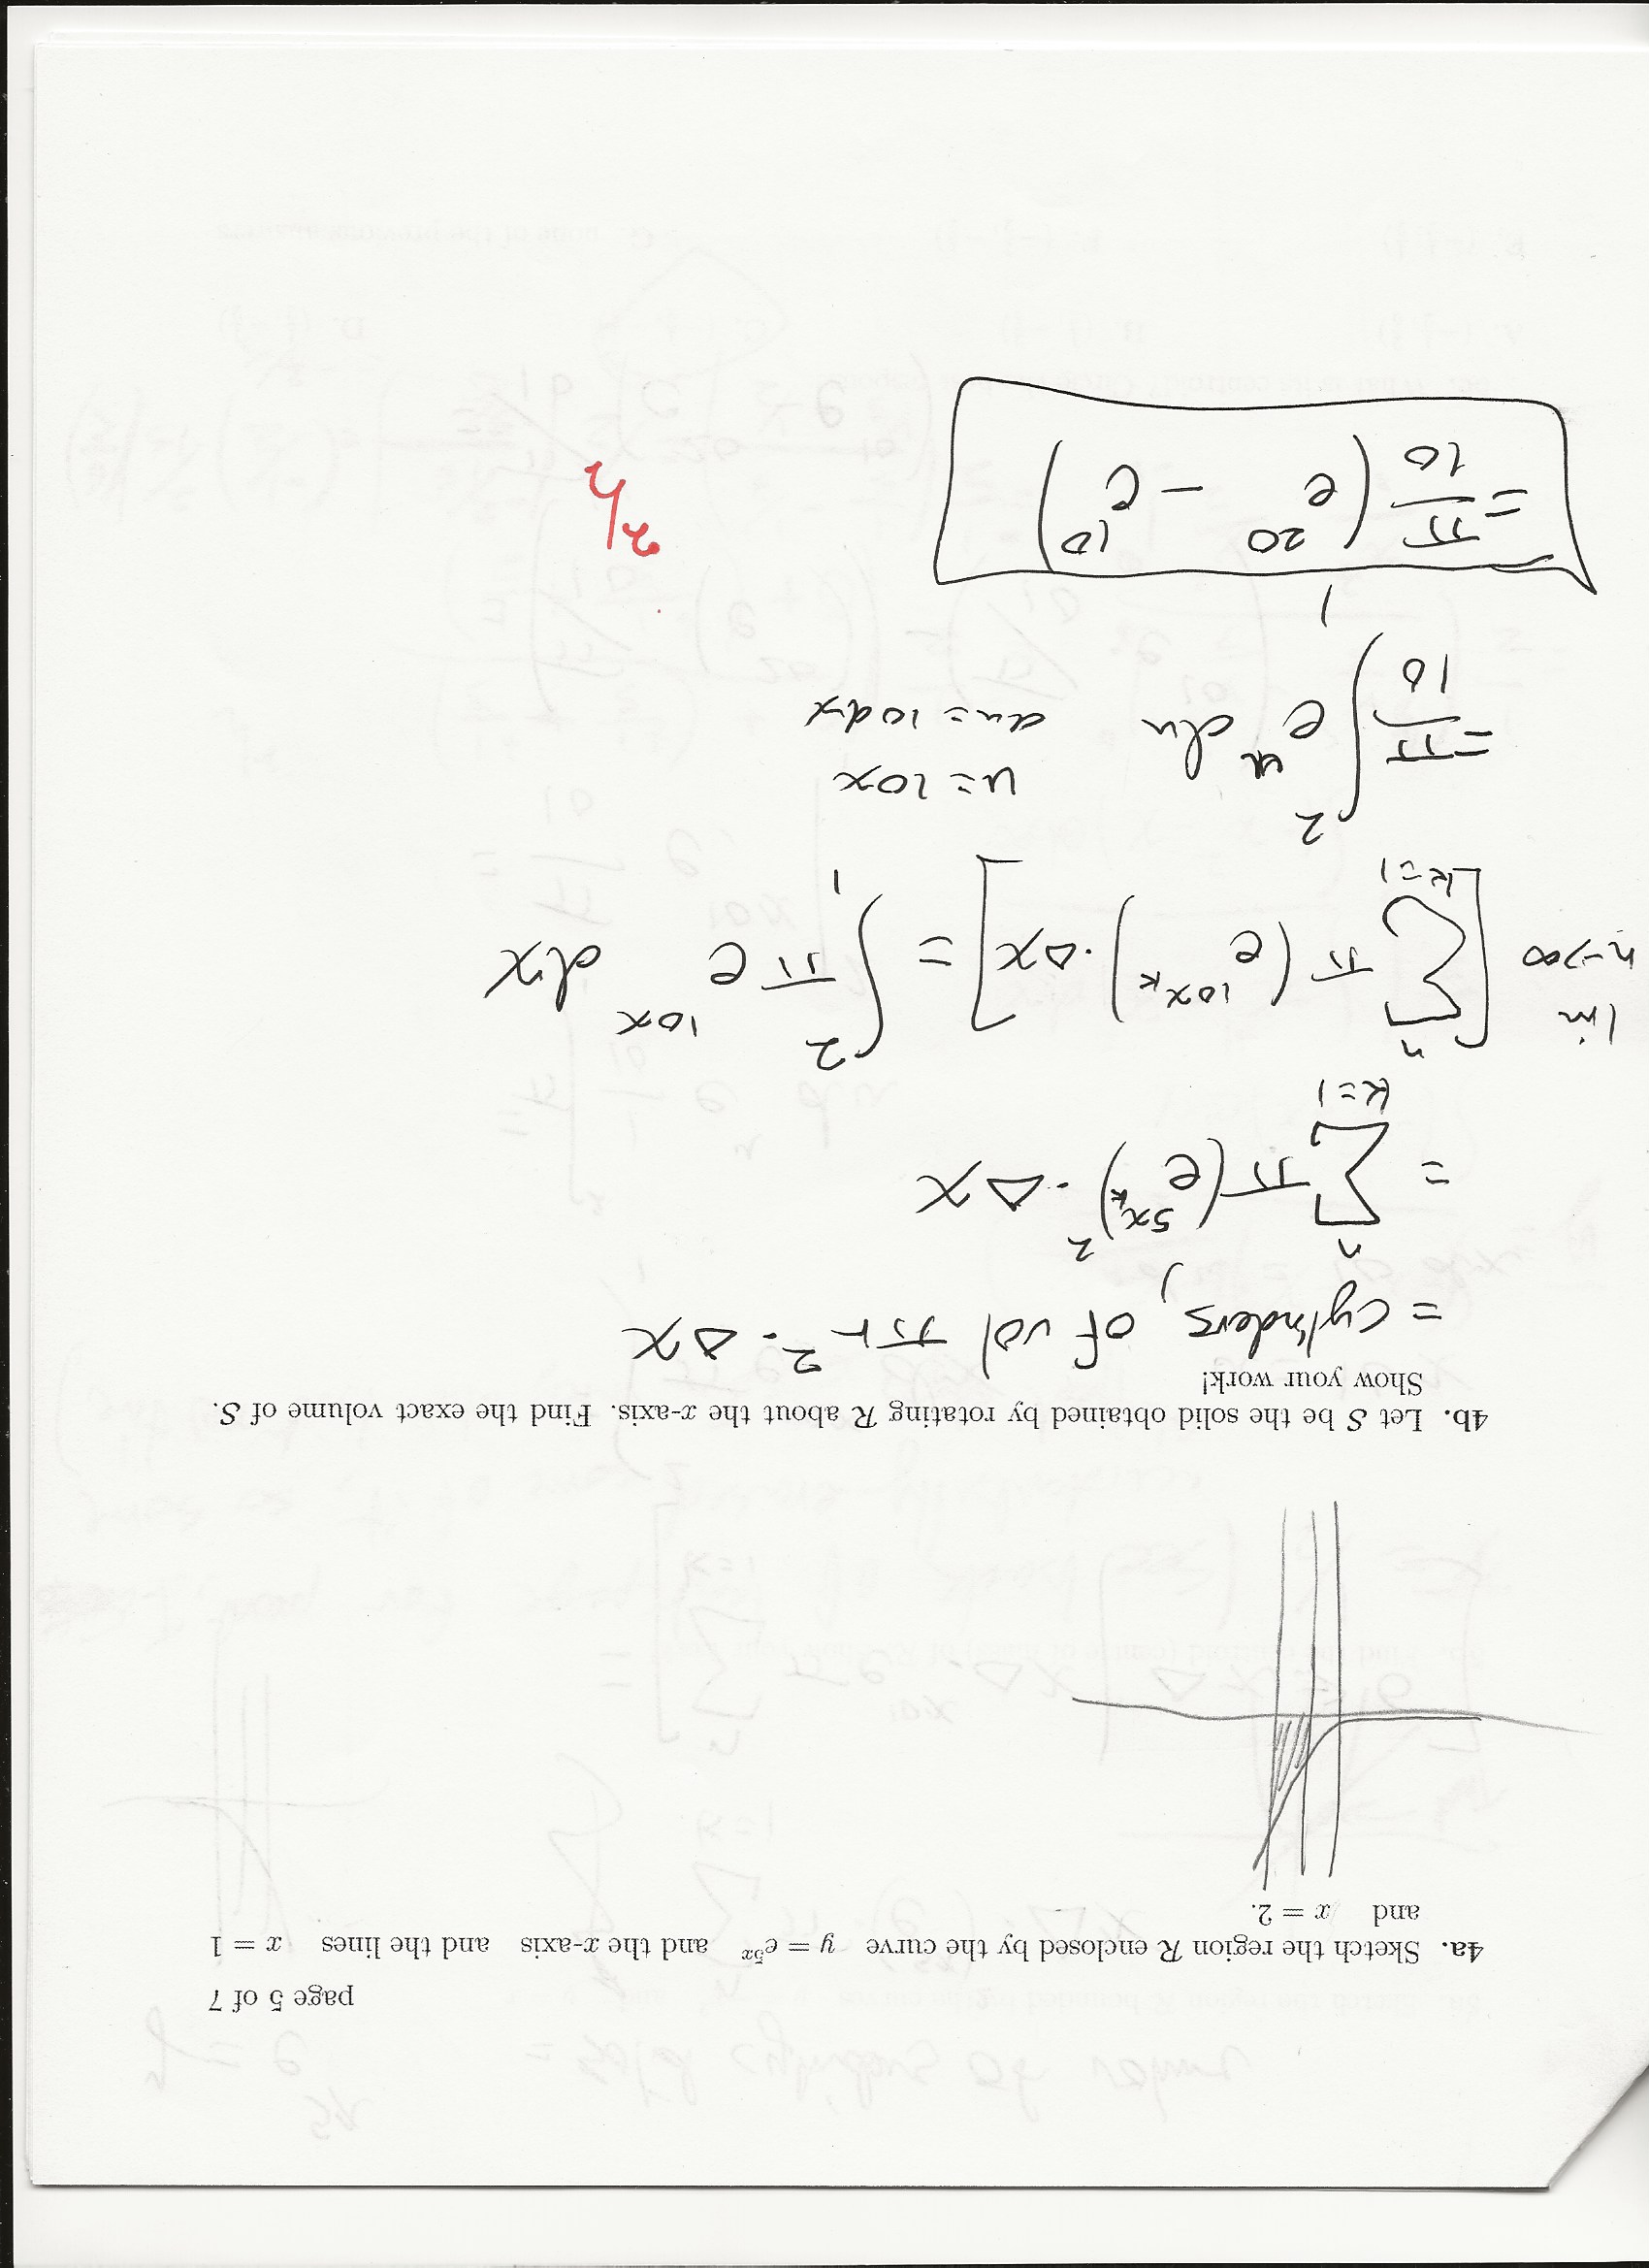 page 5 of 7
4a. Sketch the region R enclosed by the curve y = e^{5x} and the x-axis and the lines x = 1
and x = 2.
4b. Let S be the solid obtained by rotating R about the x-axis. Find the exact volume of S.
Show your work!
= cylinders, of vol πr² · Δx
= \sum_{k=1}^{n} π(e^{5x_k})² · Δx
lim_{n→∞} [\sum_{k=1}^{n} π(e^{10x_k}) · Δx] = \int_1^2 πe^{10x} dx
= \frac{π}{10} \int_1^2 e^u du u = 10x
du = 10dx
= \frac{π}{10} (e^{20} − e^{10})